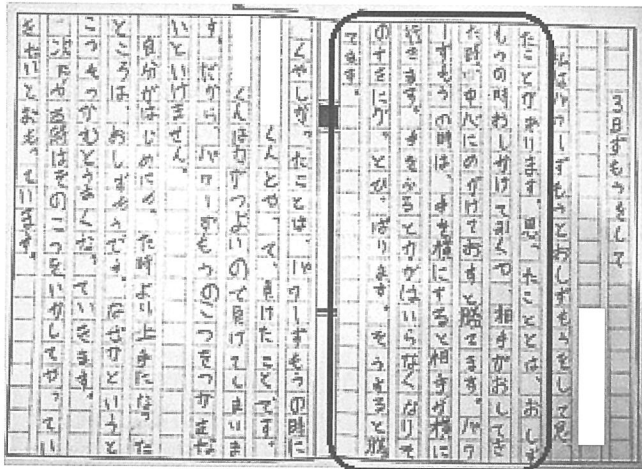 3日ずもうをして
私はパワーずもうとおしずもうをして思っ
たことがあります。思ったこととは、おしず
もうの時おしかけて引くや、相手がおしてき
た時、中心にめがけておすと勝てます。パワ
ーずもうの時は、手を横にすると相手が横に
行きます。手をふると力がはいらなくなりそ
のすきにグっとひっぱります。そうすると勝
てます。
くやしかったことは、パワーずもうの時に
くんとやって、負けたことです。
くんは力がつよいので負けてしまいま
す。だから、パワーずもうのこつをつかまな
いといけません。
自分がはじめにやった時より上手になった
ところは、おしずもうです。なぜかというと
こつをつかむとうまくなっていきます。
次にやる時はそのこつをいかしてやってい
きたいとおもっています。